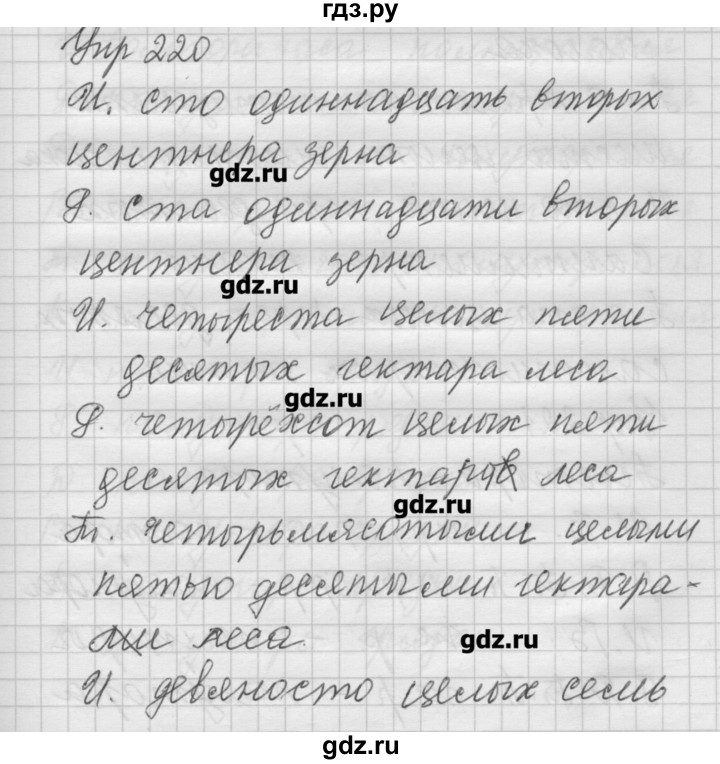 гдз.ру
Упр 220
И. сто одиннадцать вторых
центнера зерна
gdz.ru
Р. ста одиннадцати вторых
центнера зерна
gdz.ru
И. четыреста целых пяти
десятых гектара леса
gdz.ru
Р. четырёхсот целых пяти
десятых гектара леса
gdz.ru
Т. четырьмясотыми целыми
пятью десятыми гектара-
ми леса.
gdz.ru
И. девяносто целых семь
gdz.ru